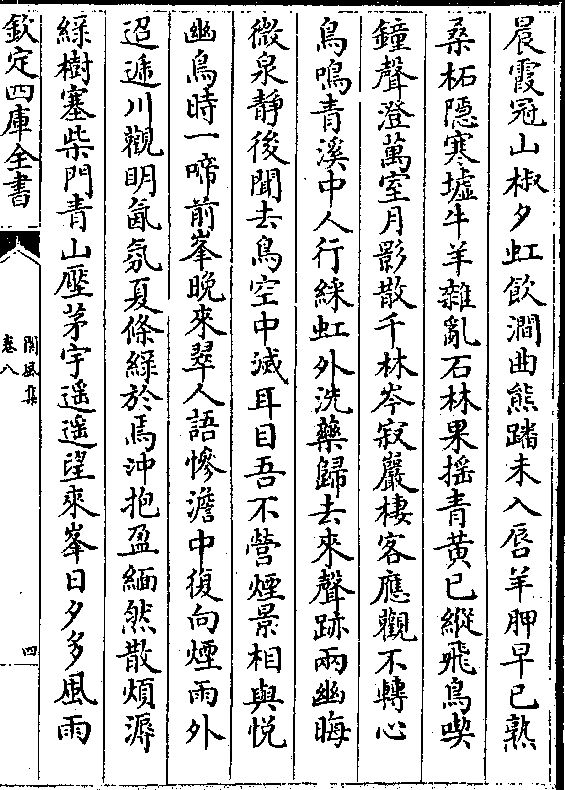 晨霞冠山椒夕虹飲澗曲熊蹯未入唇羊胛早已熟
桑柘隠寒墟牛羊雜亂石林果揺青黄已縱飛鳥喫
鐘聲澄萬室月影散千林岑寂巖棲客應觀不轉心
鳥鳴青溪中人行綵虹外洗藥歸去來聲跡兩幽晦
微泉静後聞去鳥空中滅耳目吾不營煙景相與悦
幽鳥時一啼前峯晚來翠人語慘澹中復向煙雨外
迢遞川觀明氤氛夏條緑於焉沖抱盈緬然散煩溽
緑樹塞柴門青山壓茅宇遥遥望來峯日夕多風雨
欽定四庫全書
閬風集
卷八
四